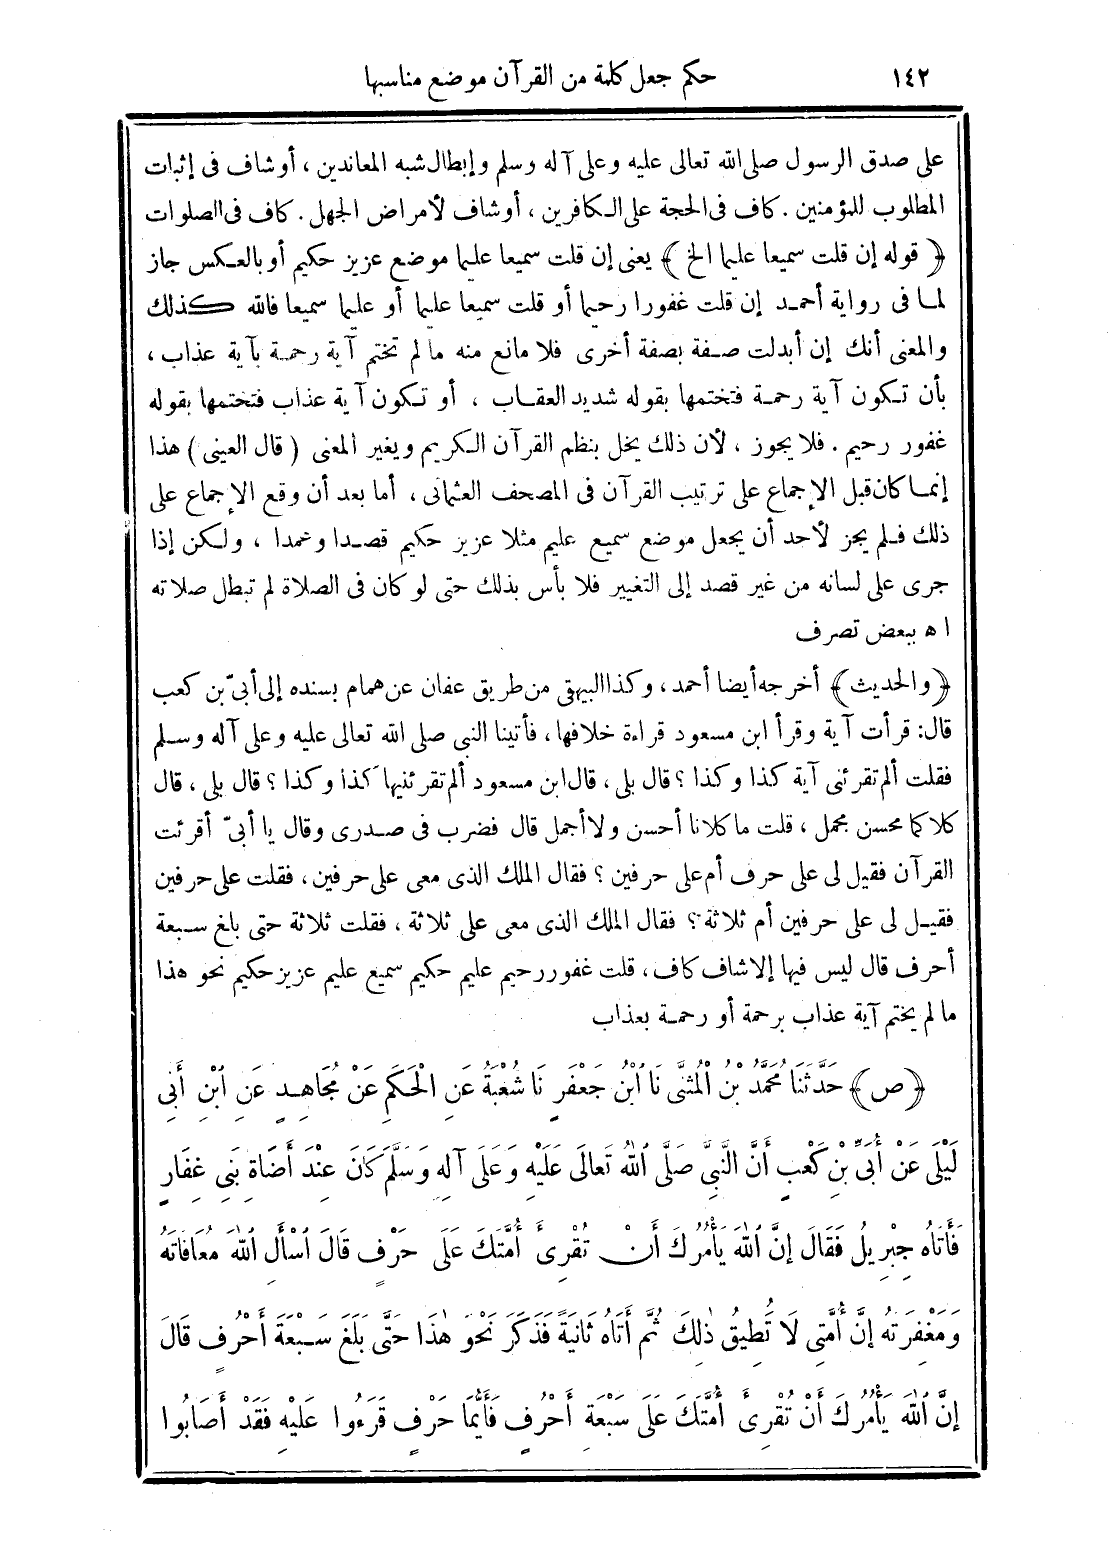 ١٤٢ حكم جعل كلمة من القرآن موضع مناسبها
على صدق الرسول صلى الله تعالى عليه وعلى آله وسلم وإبطال شبه المعاندين ، أو شاف فى إثبات
المطلوب للمؤمنين . كاف فى الحجة على الكافرين ، أو شاف لأمراض الجهل . كاف فى الصلوات
﴿ قوله إن قلت سميعا عليما الخ ﴾ يعنى إن قلت سميعا عليما موضع عزيز حكيم أو بالعكس جاز
لما فى رواية أحمد إن قلت غفورا رحيما أو قلت سميعا عليما أو عليما سميعا فالله كذلك
والمعنى أنك إن أبدلت صفة بصفة أخرى فلا مانع منه ما لم تختم آية رحمة بآية عذاب ،
بأن تكون آية رحمة فتختمها بقوله شديد العقاب ، أو تكون آية عذاب فتختمها بقوله
غفور رحيم . فلا يجوز ، لأن ذلك يخل بنظم القرآن الكريم ويغير المعنى ( قال العينى ) هذا
إنما كان قبل الإجماع على ترتيب القرآن فى المصحف العثمانى ، أما بعد أن وقع الإجماع على
ذلك فلم يجز لأحد أن يجعل موضع سميع عليم مثلا عزيز حكيم قصدا وعمدا ، ولكن إذا
جرى على لسانه من غير قصد إلى التغيير فلا بأس بذلك حتى لو كان فى الصلاة لم تبطل صلاته
ا ه ببعض تصرف
﴿ والحديث ﴾ أخرجه أيضا أحمد ، وكذا البيهقى من طريق عفان عن همام بسنده إلى أبىّ بن كعب
قال : قرأت آية وقرأ ابن مسعود قراءة خلافها ، فأتينا النبى صلى الله تعالى عليه وعلى آله وسلم
فقلت ألم تقرئنى آية كذا وكذا ؟ قال بلى ، قال ابن مسعود ألم تقرئنيها كذا وكذا ؟ قال بلى ، قال
كلاكما محسن مجمل ، قلت ما كلانا أحسن ولا أجمل قال فضرب فى صدرى وقال يا أبىّ أقرئت
القرآن فقيل لى على حرف أم على حرفين ؟ فقال الملك الذى معى على حرفين ، فقلت على حرفين
فقيل لى على حرفين أم ثلاثة ؟ فقال الملك الذى معى على ثلاثة ، فقلت ثلاثة حتى بلغ سبعة
أحرف قال ليس فيها إلا شاف كاف ، قلت غفور رحيم عليم حكيم سميع عليم عزيز حكيم نحو هذا
ما لم يختم آية عذاب برحمة أو رحمة بعذاب
﴿ ص ﴾ حَدَّثَنَا مُحَمَّدُ بْنُ الْمُثَنَّى نَا ابْنُ جَعْفَرٍ نَا شُعْبَةُ عَنِ الْحَكَمِ عَنْ مُجَاهِدٍ عَنِ ابْنِ أَبِى
لَيْلَى عَنْ أُبَىِّ بْنِ كَعْبٍ أَنَّ النَّبِىَّ صَلَّى اللهُ تَعَالَى عَلَيْهِ وَعَلَى آلِهِ وَسَلَّمَ كَانَ عِنْدَ أَضَاةِ بَنِى غِفَارٍ
فَأَتَاهُ جِبْرِيلُ فَقَالَ إِنَّ اللهَ يَأْمُرُكَ أَنْ تُقْرِئَ أُمَّتَكَ عَلَى حَرْفٍ قَالَ أَسْأَلُ اللهَ مُعَافَاتَهُ
وَمَغْفِرَتَهُ إِنَّ أُمَّتِى لَا تُطِيقُ ذٰلِكَ ثُمَّ أَتَاهُ ثَانِيَةً فَذَكَرَ نَحْوَ هٰذَا حَتَّى بَلَغَ سَبْعَةَ أَحْرُفٍ قَالَ
إِنَّ اللهَ يَأْمُرُكَ أَنْ تُقْرِئَ أُمَّتَكَ عَلَى سَبْعَةِ أَحْرُفٍ فَأَيُّمَا حَرْفٍ قَرَءُوا عَلَيْهِ فَقَدْ أَصَابُوا